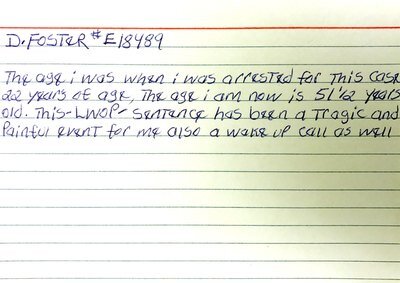 D. FOSTER #E18489
The age i was when i was arrested for This case
22 years of age, The age i am now is 51 1/2 years
old. This-LWOP- Sentence has been a Tragic and
Painful event for me also a wake up call as well